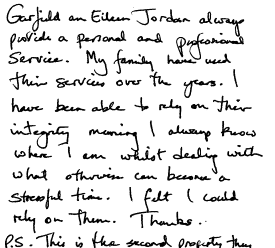 Garfield an Eileen Jordan always
provide a personal and professional
Service. My family have used
their services over the years. I
have been able to rely on their
integrity meaning I always know
where I am whilst dealing with
what otherwise can become a
stressful time. I felt I could
rely on them. Thanks.
P.S. This is the second property they